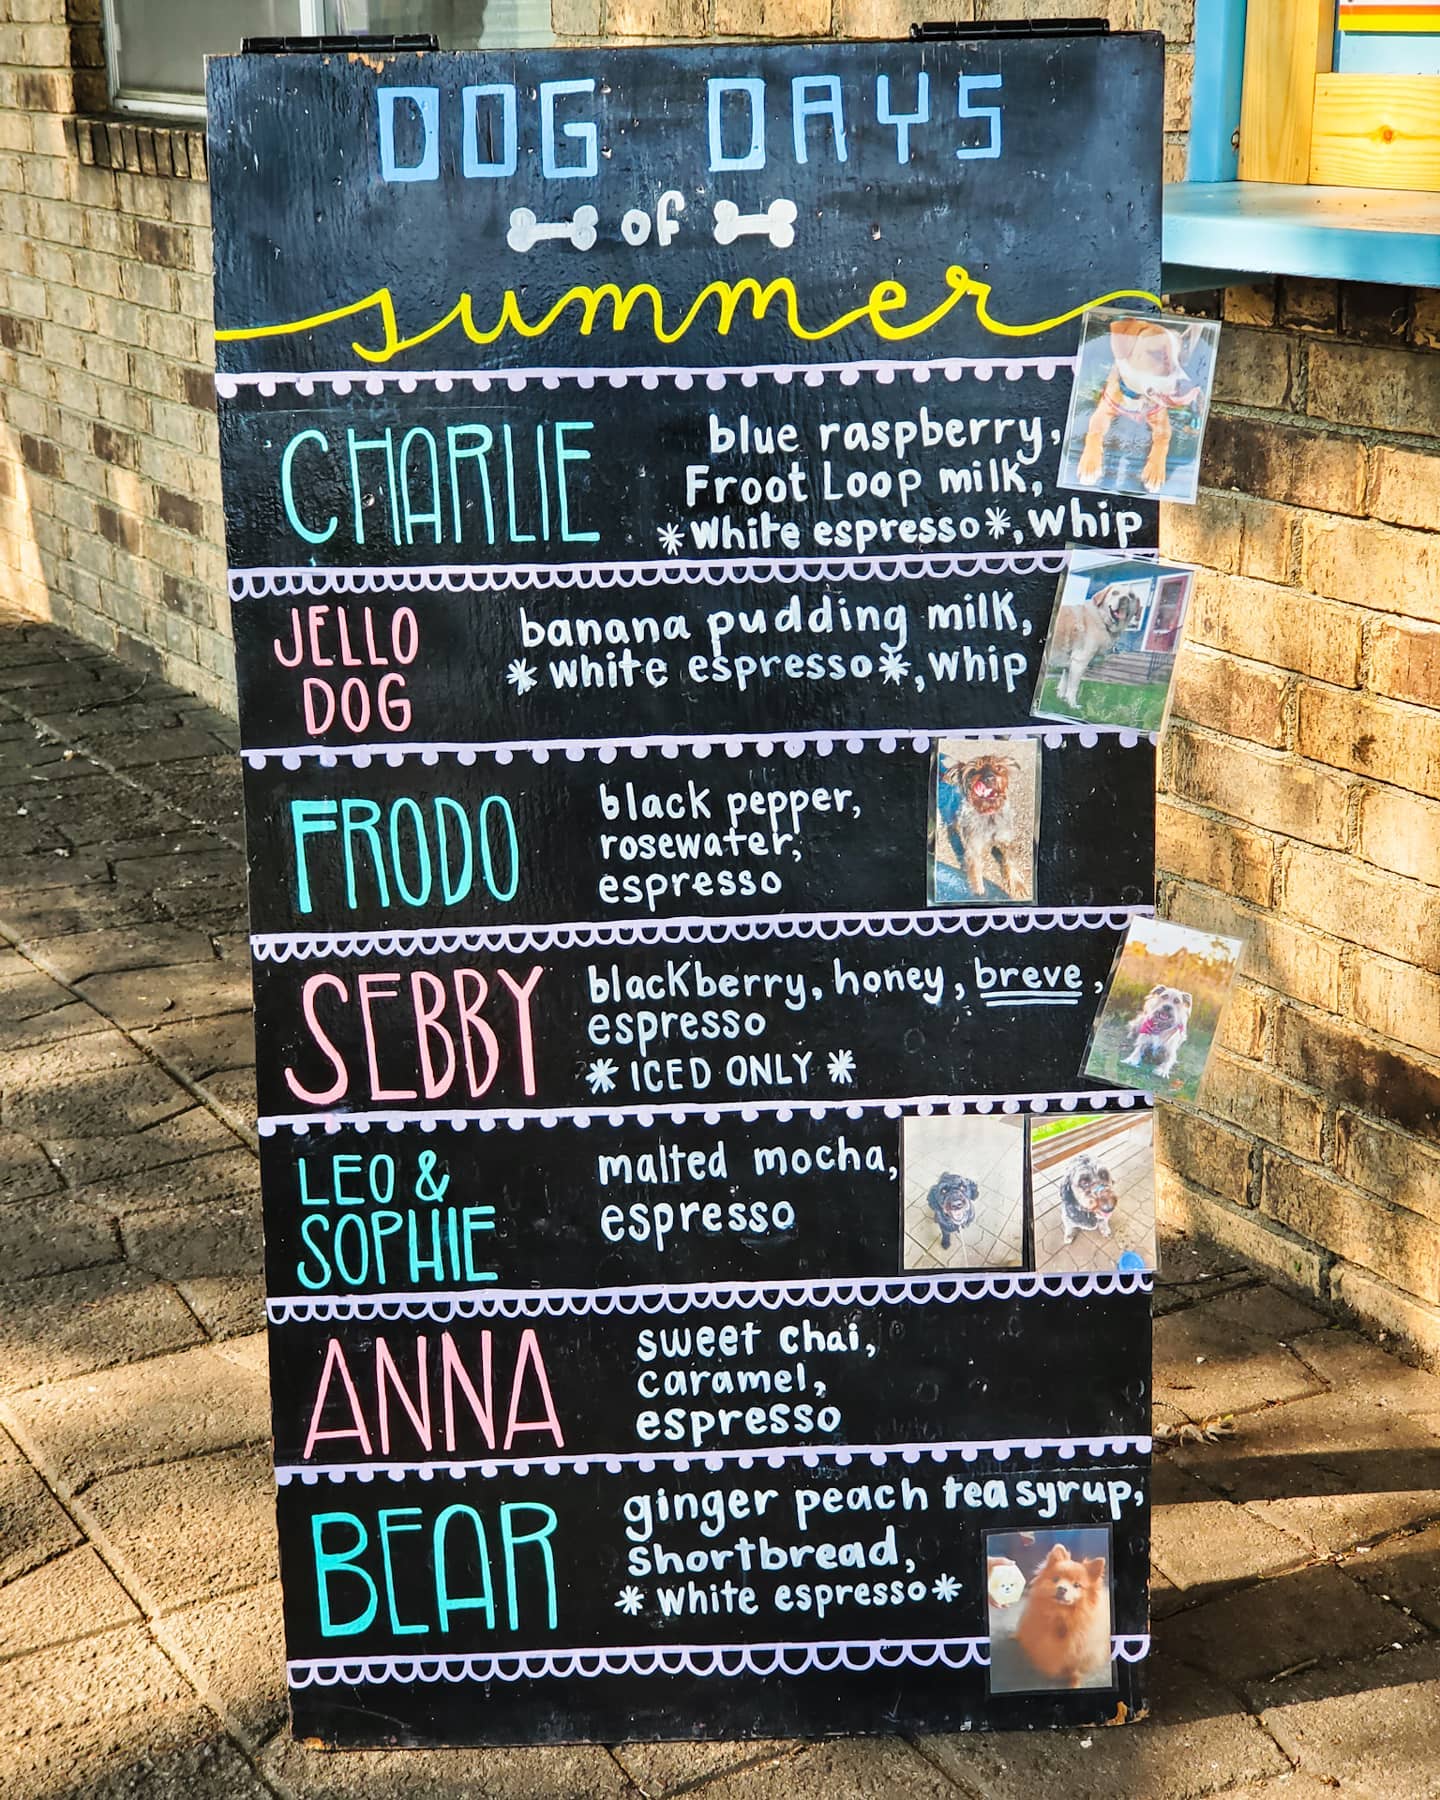 DOG DAYS
of
summer
CHARLIE
blue raspberry,
Froot Loop milk,
*White espresso*, whip
JELLO
DOG
banana pudding milk,
*white espresso*, whip
FRODO
black pepper,
rosewater,
espresso
SEBBY
blackberry, honey, breve,
espresso
*ICED ONLY*
LEO &
SOPHIE
malted mocha,
espresso
ANNA
sweet chai,
caramel,
espresso
BEAR
ginger peach tea syrup,
shortbread,
*white espresso*